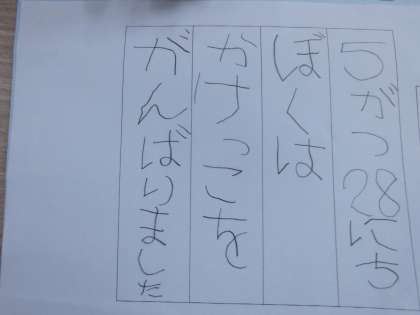 5がつ28にち
ぼくは
かけっこを
がんばりました